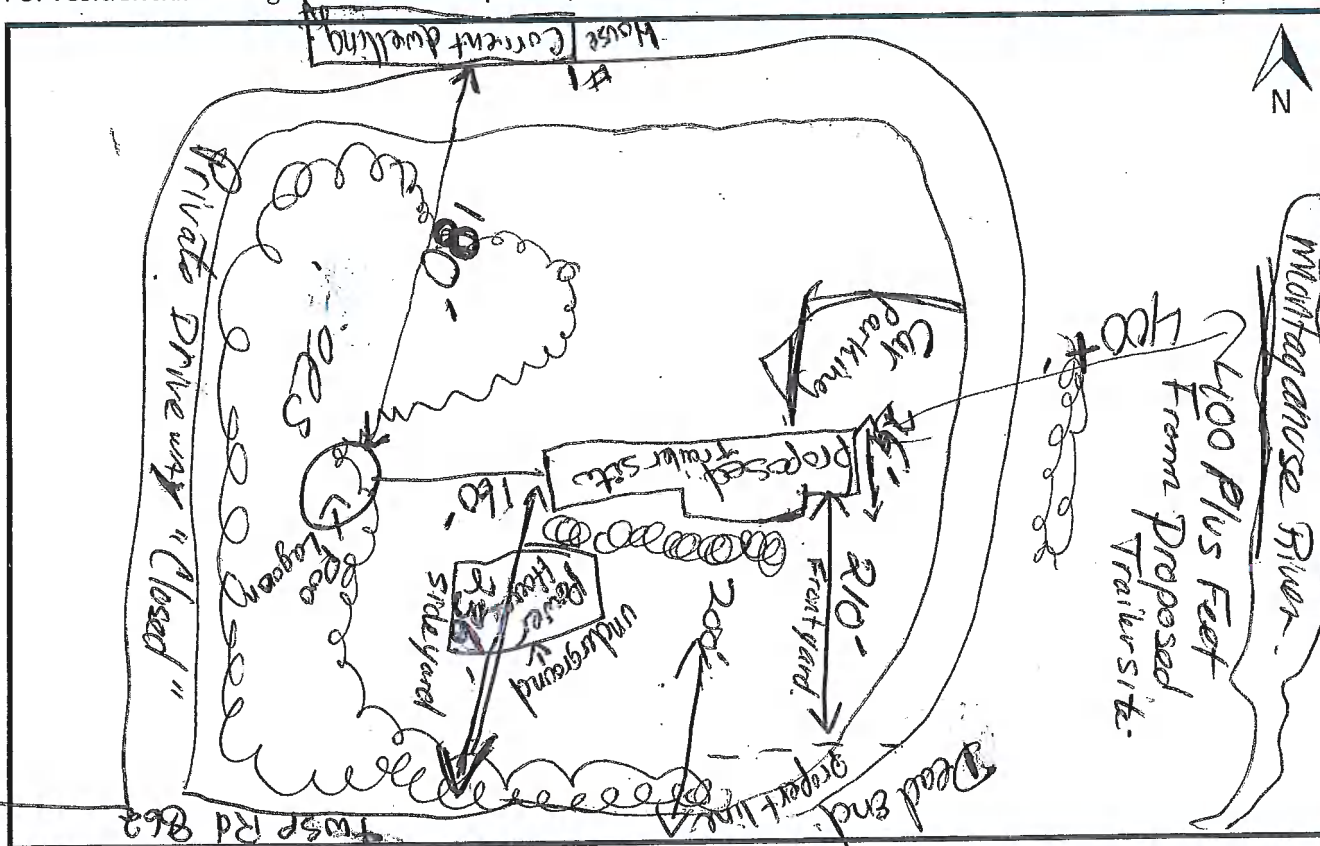 House
#1
[Current dwelling]
N
Private Driveway "Closed"
180'
Car
Parking
Montaganuse River.
400
400 Plus Feet
From Proposed
Trailer site.
proposed
Trailer site
160'
Lagoon
Power
House
underground
side yard
200'
210'
Front yard.
Dead end.
Propert line
TWSP Rd 862